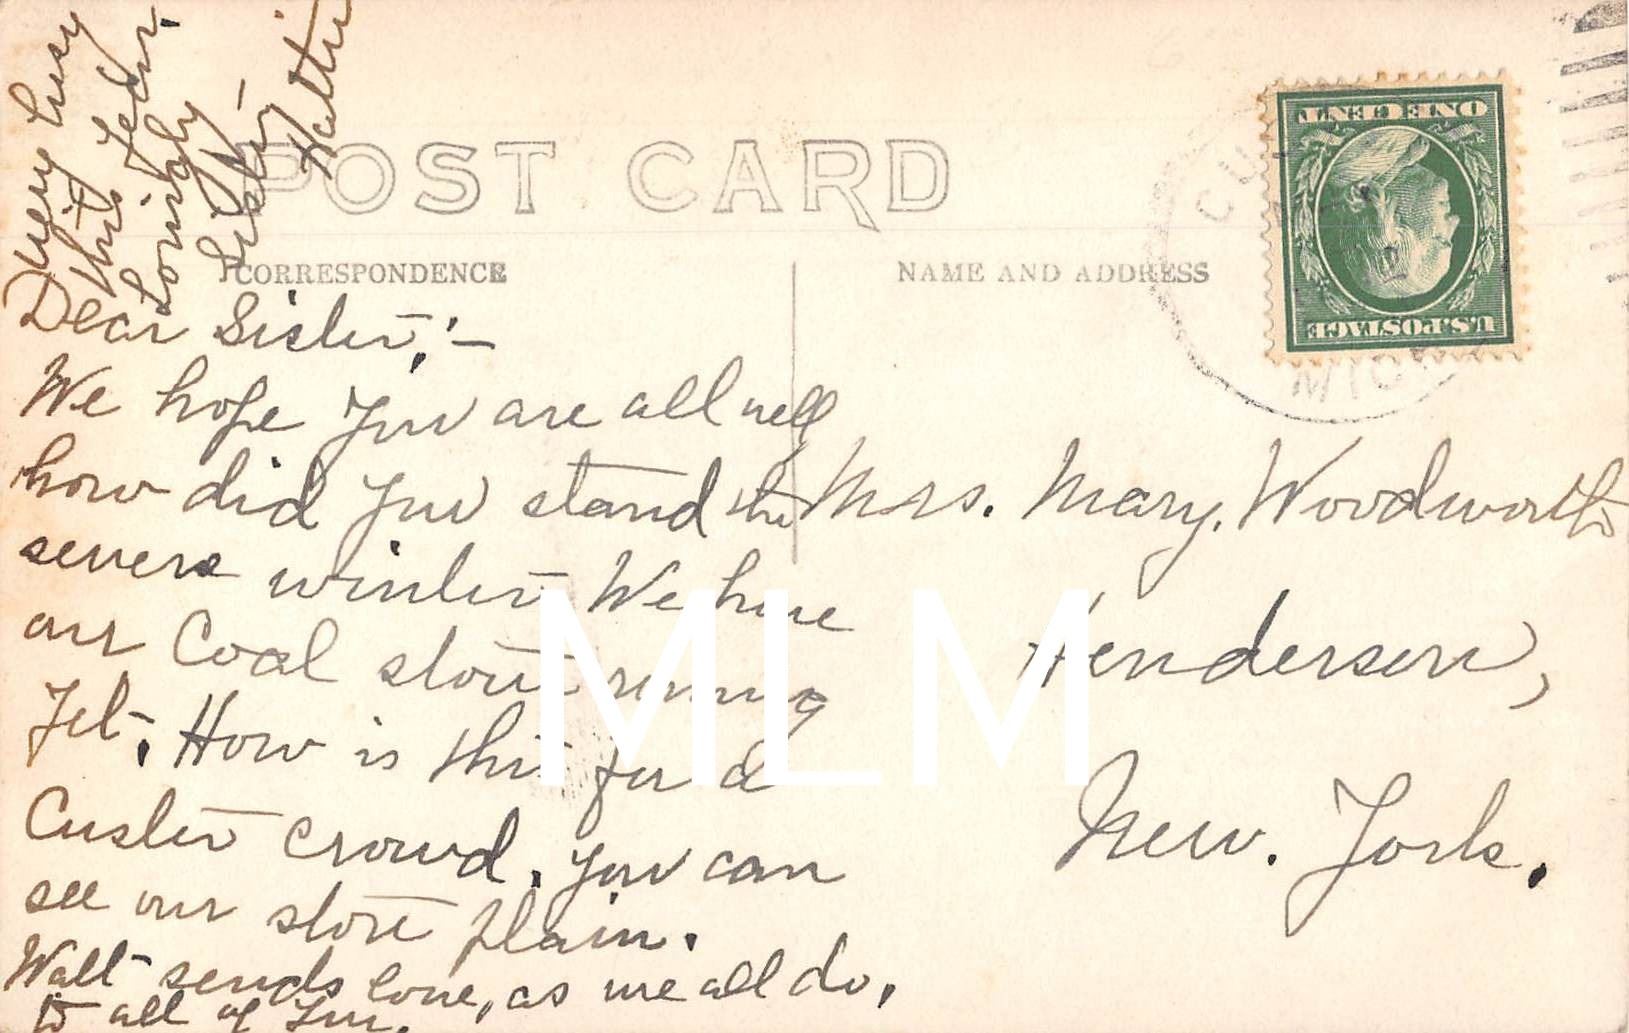 POST CARD
CORRESPONDENCE
NAME AND ADDRESS
ONE CENT
U.S. POSTAGE
CU
MICH
Dear Sister:-
We hope you are all well
how did you stand the
severe winter We have
our Coal stove running
yet. How is this for a
Custer crowd. you can
see our store plain.
Walt sends love, as we all do,
to all of you.
Very busy
this year.
Lovingly
Sister -
Hattie
Mrs. Mary. Woodworth
Henderson,
New. York.
MLM